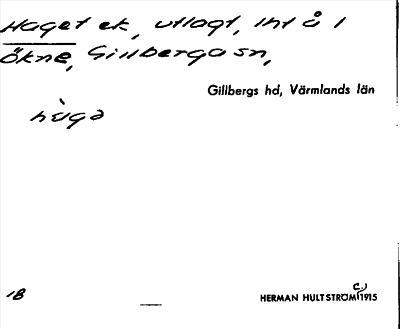 Haget ek, utlagt, Int å 1
Ökne, Gillberga sn,
Gillbergs hd, Värmlands län
hùgə
1B
HERMAN HULTSTRÖM 1915